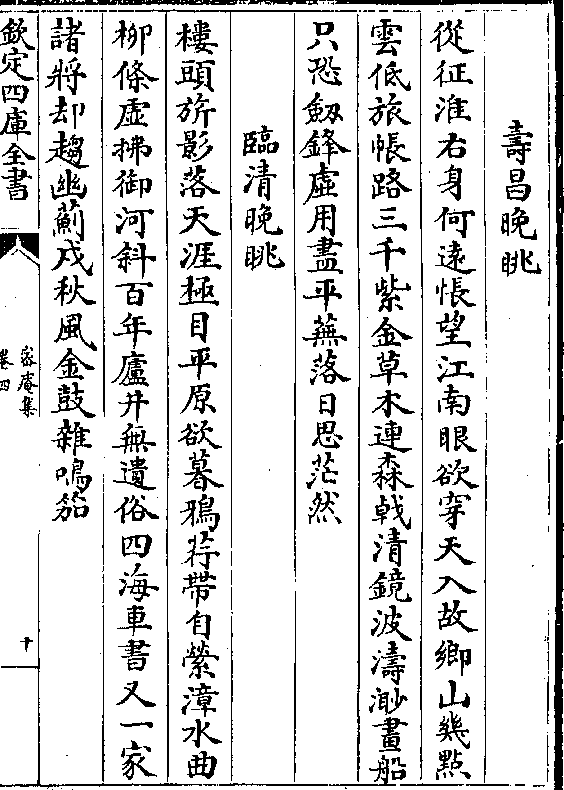 壽昌晚眺
從征淮右身何遠悵望江南眼欲穿天入故鄉山幾點
雲低旅帳路三千紫金草木連森戟清鏡波濤渺畫船
只恐劔鋒虛用盡平蕪落日思茫然
臨清晚眺
樓頭旂影落天涯極目平原欲暮鴉荇帶自縈漳水曲
柳條虛拂御河斜百年廬井無遺俗四海車書又一家
諸將却趨幽薊戍秋風金鼓雜鳴笳
欽定四庫全書
密庵集
卷四
十